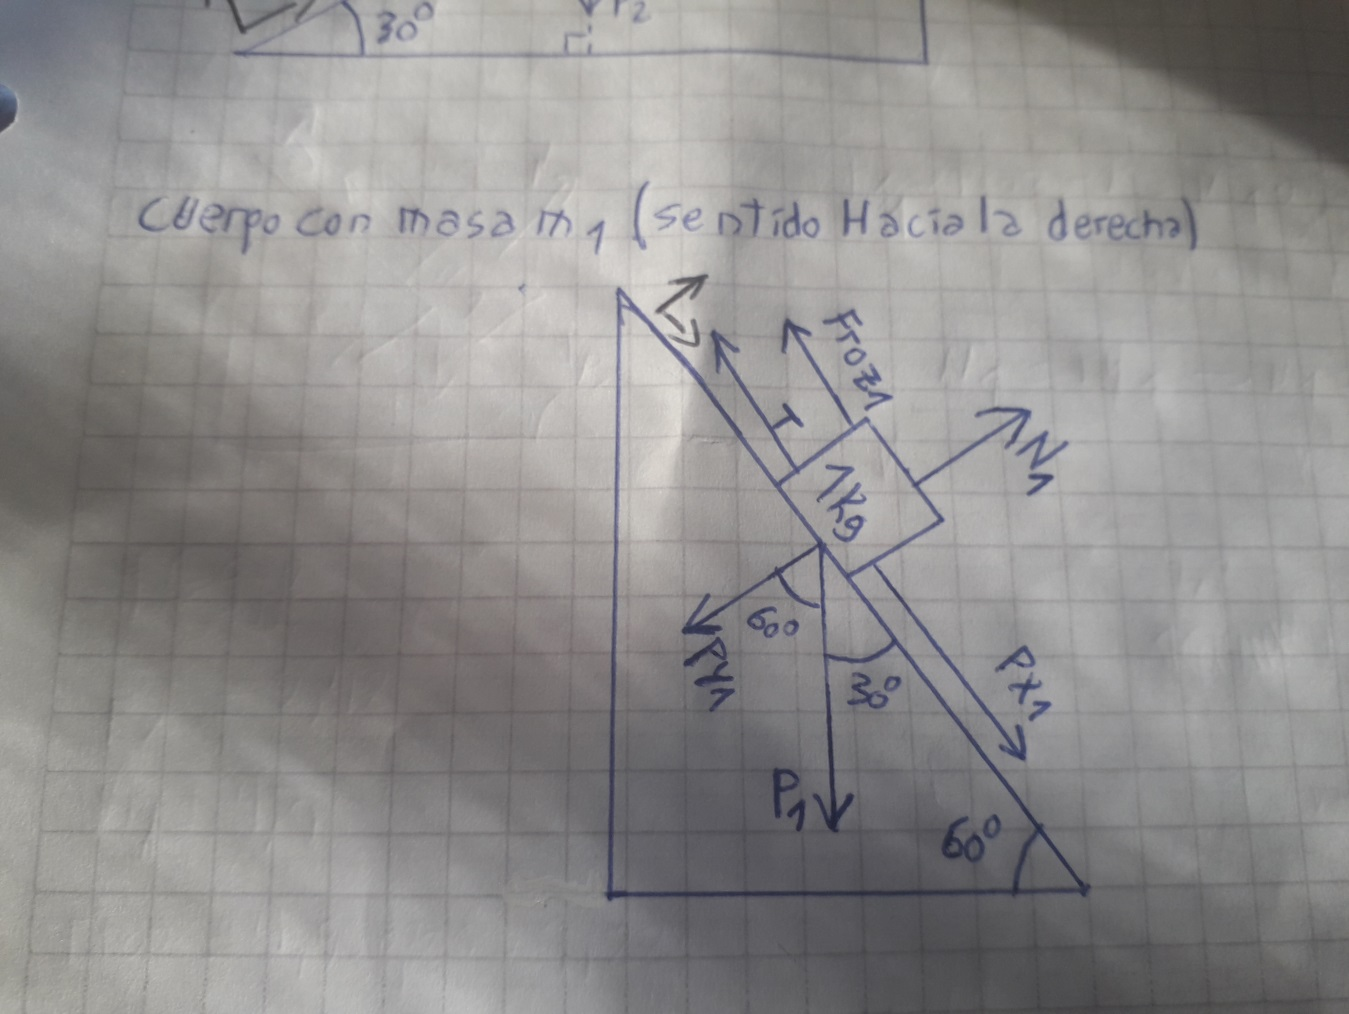 30°
P2
Cuerpo con masa m1 (sentido Hacia la derecha)
Froz1
T
N1
1Kg
60°
Py1
30°
Px1
P1
60°